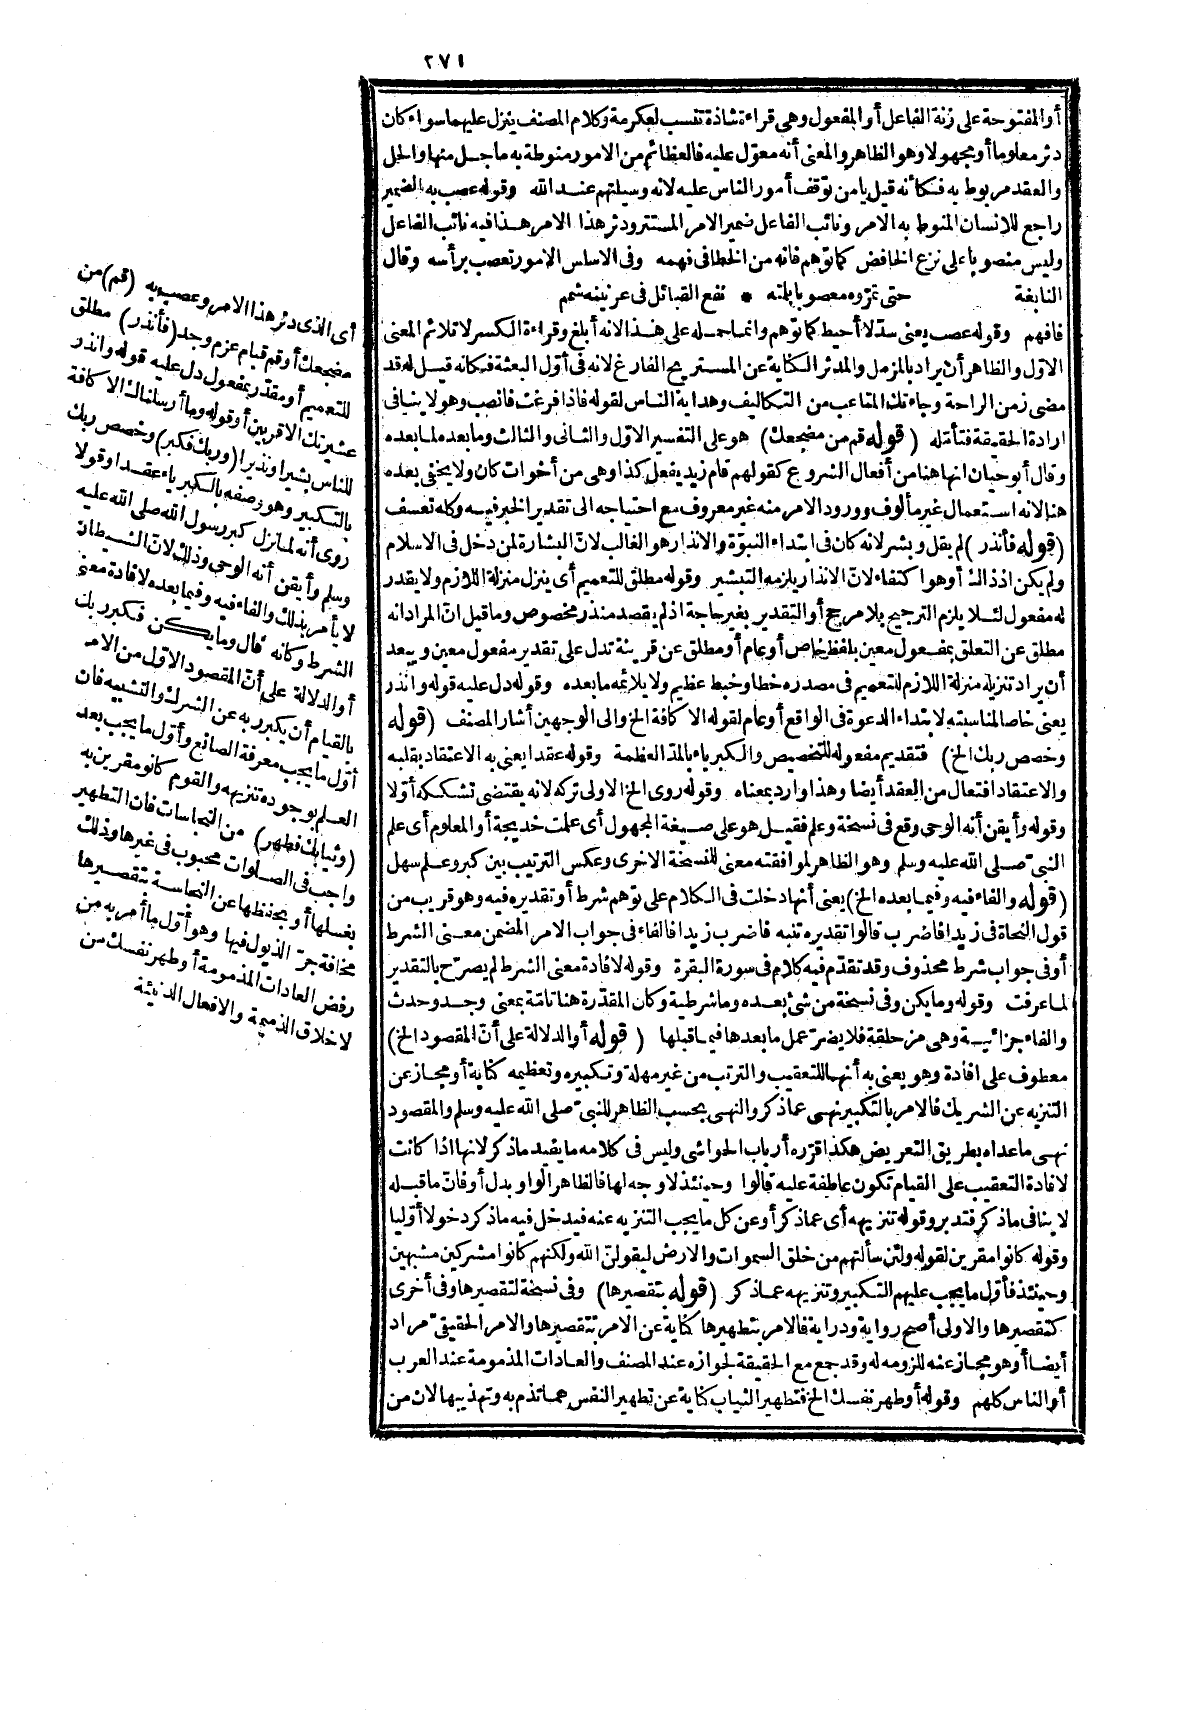 ٢٧١
أو المفتوحة على زنة الفاعل أو المفعول وهى قراءة شاذة تنسب لعكرمة وكلام المصنف ينزل عليهما سواء كان
دثر معلوما أو مجهولا وهو الظاهر والمعنى أنه معوّل عليه فالعظائم من الامور منوطة به ماجل منها والحل
والعقد مربوط به فكأنه قيل يا من توقف أمور الناس عليه لانه وسيلتهم عند الله وقوله عصب به الضمير
راجع للانسان المنوط به الامر ونائب الفاعل ضمير الامر المستتر ودثر هذا الامر هذا فيه نائب الفاعل
وليس منصوبا على نزع الخافض كما توهم فانه من الخطا فى فهمه وفى الاساس الامور تعصب برأسه وقال
النابغة حتى تروه معصوبا بلمته * نقع القبائل فى عرنينه شمم
فافهم وقوله عصب يعنى سدّ لا أحيط كما توهم وانما حمله على هذا لانه أبلغ وقراءة الكسر لا تلائم المعنى
الاوّل والظاهر أن يراد بالمزمل والمدثر الكناية عن المستريح الفارغ لانه فى أوّل البعثة فكانه قيل له قد
مضى زمن الراحة وجاءتك المتاعب من التكاليف وهداية الناس لقوله فاذا فرغت فانصب وهو لا ينافى
ارادة الحقيقة فتأمّله (قوله قم من مضجعك) هو على التفسير الاوّل والثانى والثالث وما بعده لما بعده
وقال أبو حيان انها هنا من أفعال الشروع كقولهم قام زيد يفعل كذا وهى من أخوات كان ولا يخفى بعده
هنا لانه استعمال غير مألوف وورود الامر منه غير معروف مع احتياجه الى تقدير الخبر فيه وكله تعسف
(قوله فأنذر) لم يقل وبشر لانه كان فى ابتداء النبوّة والانذار هو الغالب لانّ البشارة لمن دخل فى الاسلام
ولم يكن اذ ذاك أو هو اكتفاء لانّ الانذار يلزمه التبشير وقوله مطلق للتعميم أى ينزل منزلة اللازم ولا يقدر
له مفعول لئلا يلزم الترجيح بلا مرجح أو التقدير بغير حاجة اذ لم يقصد منذر مخصوص وما قيل انّ المراد انه
مطلق عن التعلق بمفعول معين بلفظ خاص أو عام أو مطلق عن قرينة تدل على تقدير مفعول معين ويبعد
أن يراد تنزيله منزلة اللازم للتعميم فى مصدره خطا وخبط عظيم ولا يلائمه ما بعده وقوله دل عليه قوله وأنذر
يعنى خاصا لمناسبته لابتداء الدعوة فى الواقع أو عام لقوله الا كافة الخ والى الوجهين أشار المصنف (قوله
وخصص ربك الخ) فتقديم مفعوله للتخصيص والكبرياء بالمدّ العظمة وقوله عقدا يعنى به الاعتقاد بقلبه
والاعتقاد افتعال من العقد أيضا وهذا وارد بمعناه وقوله روى الخ الاولى تركه لانه يقتضى تشككه أوّلا
وقوله وأيقن أنه الوحى وقع فى نسخة وعلم فقيل هو على صيغة المجهول أى علمت خديجة أو المعلوم أى علم
النبىّ صلى الله عليه وسلم وهو الظاهر لموافقته معنى للنسخة الاخرى وعكس الترتيب بين كبر وعلم سهل
(قوله والفاء فيه وفيما بعده الخ) يعنى أنها دخلت فى الكلام على توهم شرط أو تقديره فيه وهو قريب من
قول النحاة فى زيدا فاضرب قالوا تقديره تنبه فاضرب زيدا فالفاء فى جواب الامر المضمن معنى الشرط
أو فى جواب شرط محذوف وقد تقدّم فيه كلام فى سورة البقرة وقوله لافادة معنى الشرط لم يصرّح بالتقدير
لما عرفت وقوله وما يكن وفى نسخة من شئ بعده وما شرطية وكان المقدّرة هنا تامّة بمعنى وجد وحدث
والفاء جزائية وهى مزحلقة فلا يضرّ عمل ما بعدها فيما قبلها (قوله أو الدلالة على أنّ المقصود الخ)
معطوف على افادة وهو يعنى به أنها للتعقيب والترتب من غير مهلة وتكبيره وتعظيمه كناية أو مجاز عن
التنزيه عن الشريك فالامر بالتكبير نهى عما ذكر والنهى بحسب الظاهر للنبىّ صلى الله عليه وسلم والمقصود
نهى ما عداه بطريق التعريض هكذا قرّره أرباب الحواشى وليس فى كلامه ما يفيد ما ذكر لانها اذا كانت
لافادة التعقيب على القيام تكون عاطفة عليه قالوا وحينئذ لا وجه لها فالظاهر الواو بدل أو فانّ ما قبله
لا ينافى ما ذكر فتدبر وقوله تنزيهه أى عما ذكر أو عن كل ما يجب التنزيه عنه فيدخل فيه ما ذكر دخولا أوّليا
وقوله كانوا مقرين لقوله ولئن سألتهم من خلق السموات والارض ليقولنّ الله ولكنهم كانوا مشركين مشبهين
وحينئذ فأوّل ما يجب عليهم التكبير وتنزيهه عما ذكر (قوله بتقصيرها) وفى نسخة لتقصيرها وفى أخرى
كتقصيرها والاولى أصح رواية ودراية فالامر بتطهيرها كناية عن الامر بتقصيرها والامر الحقيقىّ مراد
أيضا أو هو مجاز عنه للزومه له وقد جمع مع الحقيقة لجوازه عند المصنف والعادات المذمومة عند العرب
أو الناس كلهم وقوله أو طهر نفسك الخ فتطهير الثياب كناية عن تطهير النفس عما تذم به وتهذيبها لان من
أى الذى دثر هذا الامر وعصب به (قم) من
مضجعك أو قم قيام عزم وجد (فأنذر) مطلق
للتعميم أو مقدّر بمفعول دل عليه قوله وأنذر
عشيرتك الاقربين أو قوله وما أرسلناك الا كافة
للناس بشيرا ونذيرا (وربك فكبر) وخصص ربك
بالتكبير وهو وصفه بالكبرياء عقدا وقولا
روى أنه لما نزل كبر رسول الله صلى الله عليه
وسلم وأيقن أنه الوحى وذلك لانّ الشيطان
لا يأمر بذلك والفاء فيه وفيما بعده لافادة معنى
الشرط وكانه قال وما يكن فكبر ربك
أو الدلالة على أنّ المقصود الاوّل من الامر
بالقيام أن يكبر ربه عن الشرك والتشبيه فان
أوّل ما يجب معرفة الصانع وأوّل ما يجب بعد
العلم بوجوده تنزيهه والقوم كانوا مقرين به
(وثيابك فطهر) من النجاسات فان التطهير
واجب فى الصلوات محبوب فى غيرها وذلك
بغسلها أو بحفظها عن النجاسة بتقصيرها
مخافة جرّ الذيول فيها وهو أوّل ما أمر به من
رفض العادات المذمومة أو طهر نفسك من
الاخلاق الذميمة والافعال الدنيئة